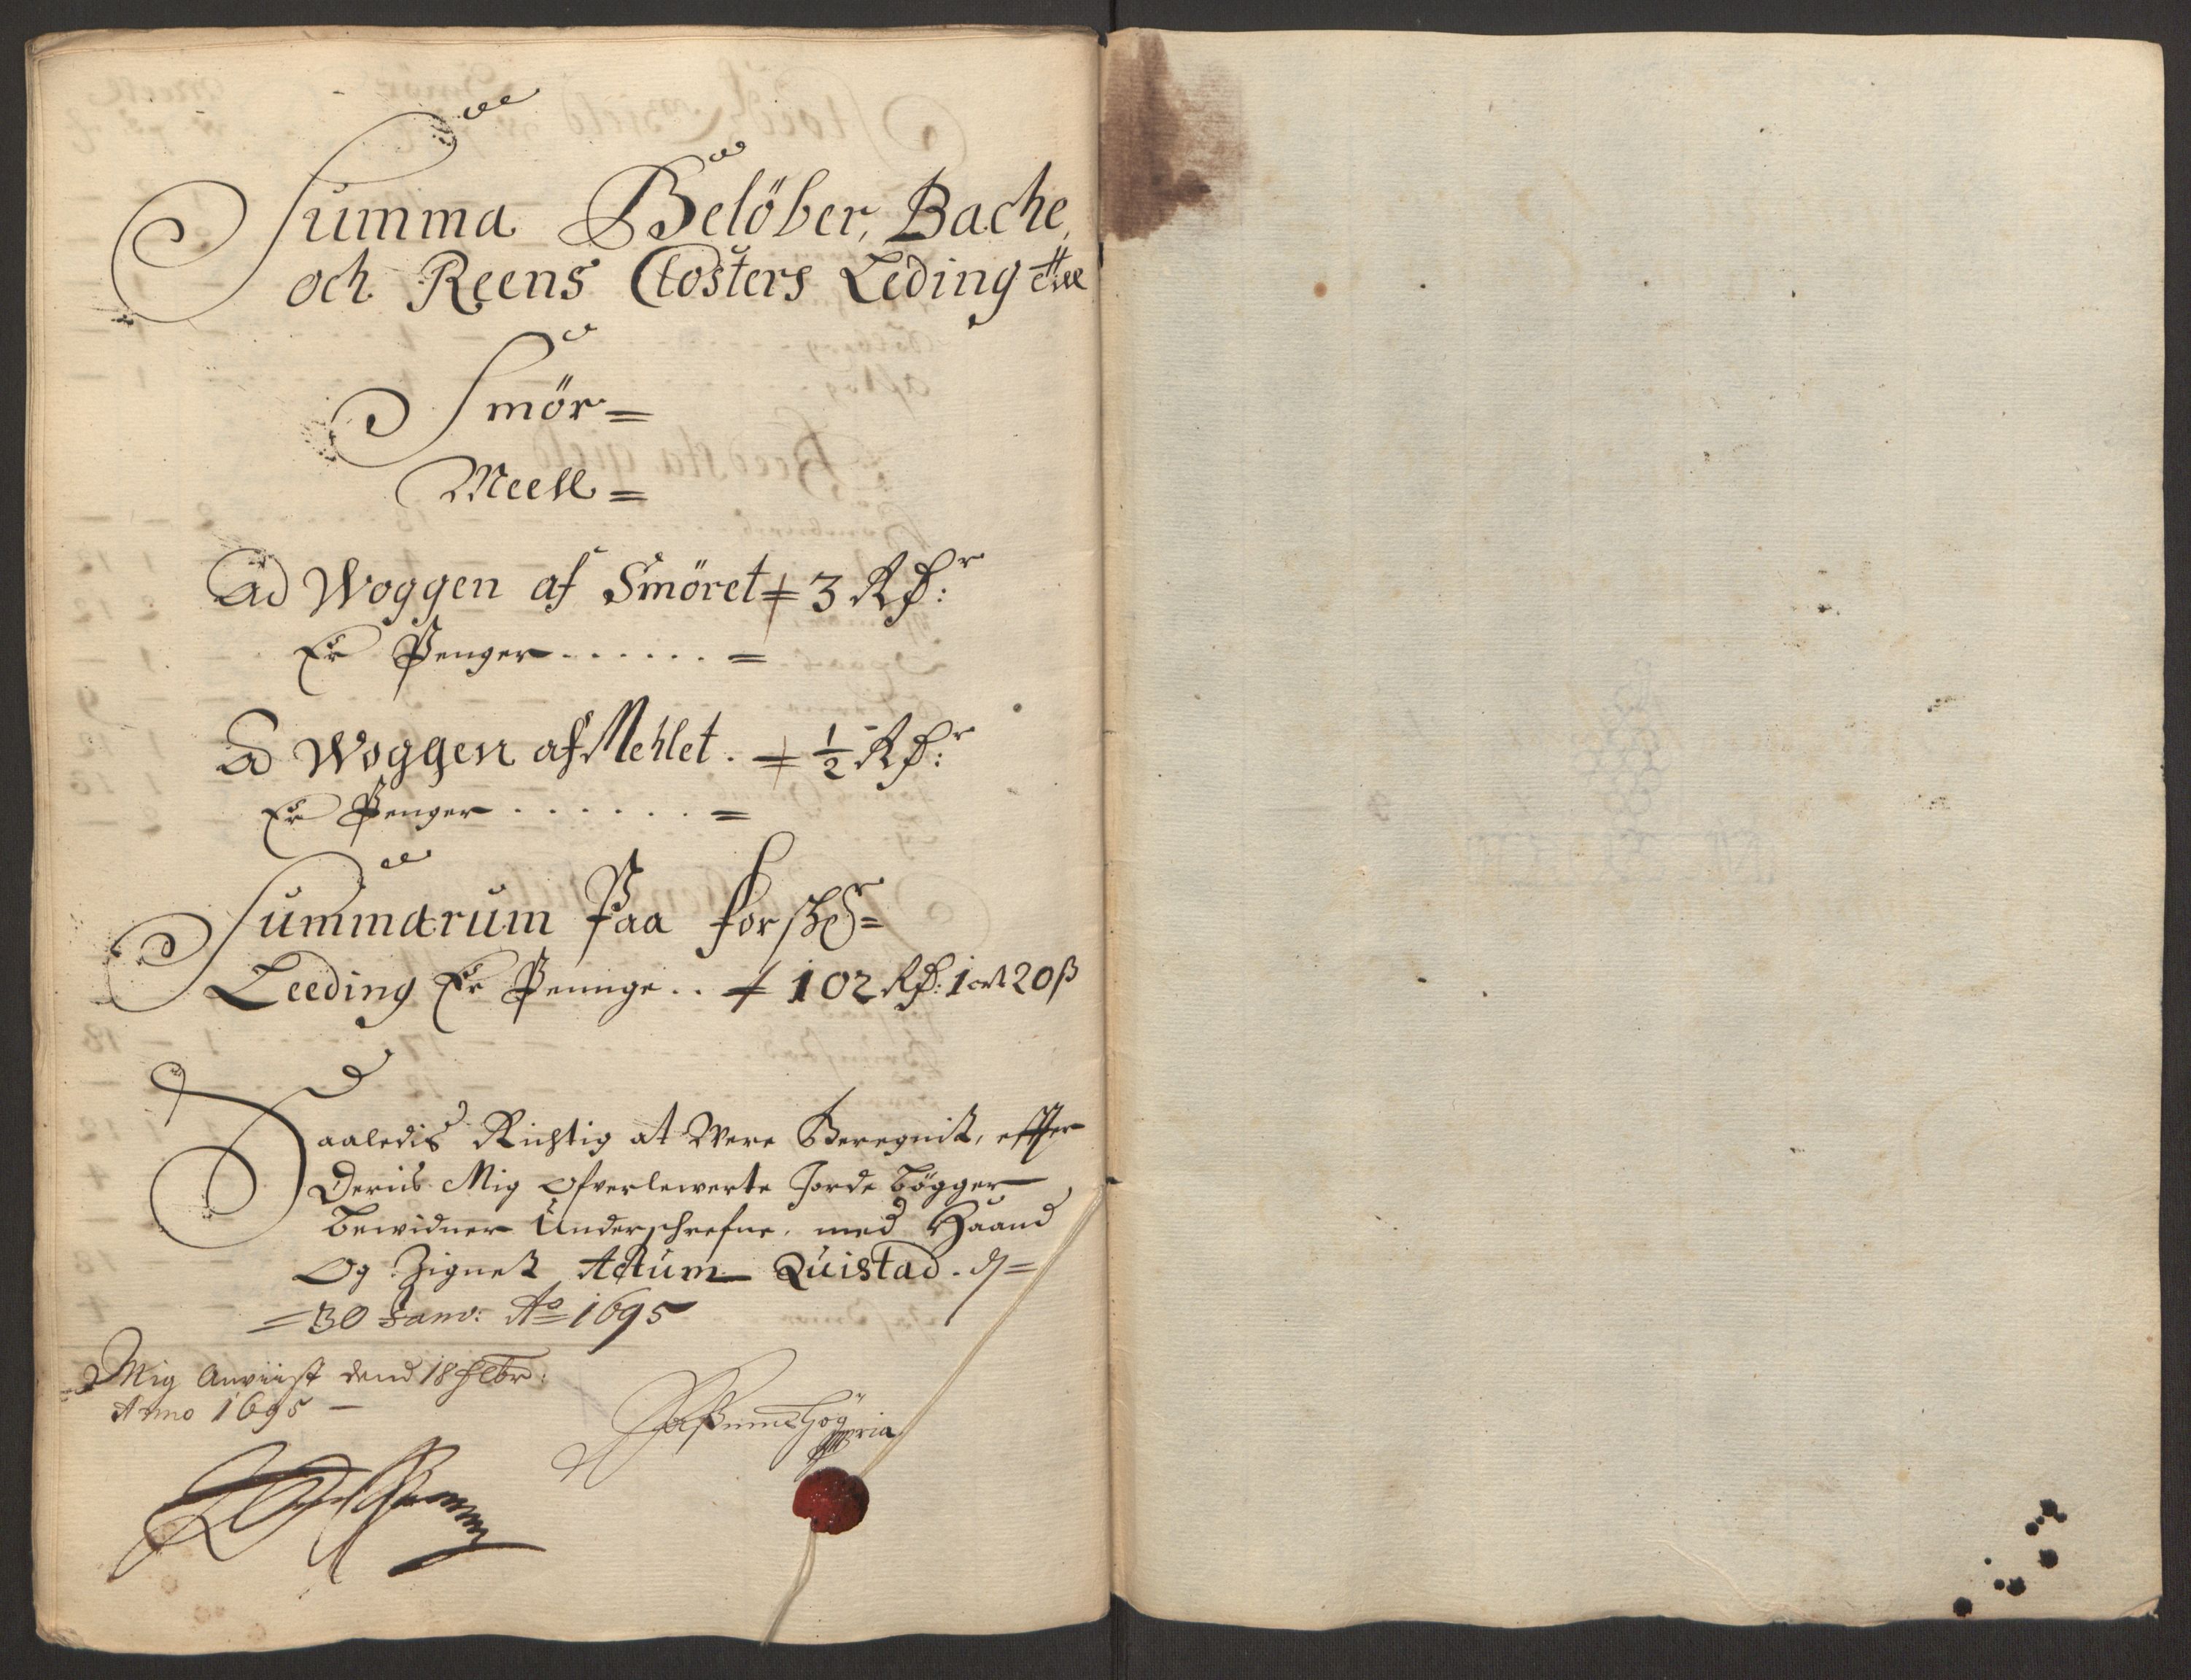 Summa Belöber, Bache,
och Reens Closters Leding
Smör =
Meell =
Ad Woggen af Smöret = 3 Rdr:
Er Penger . . . . . . =
Ad Woggen af Mehlet . = ½ Rdr:
Er Penger . . . . . . =
Summarum Paa forsch: =
Leeding Er Penninge . . = 102 Rd: 1 ort 20 ß
Saaledis Richtig at Were Beregnit, effter
Deris Mig Ofverleverte Jorde Bögger
Bewidner Underschrefne, med Haand
Og Zignet Actum Quistad . d =
= 30 Janv: Ao 1695
Mig Anviist dend 18 Febr:
Anno 1695 —